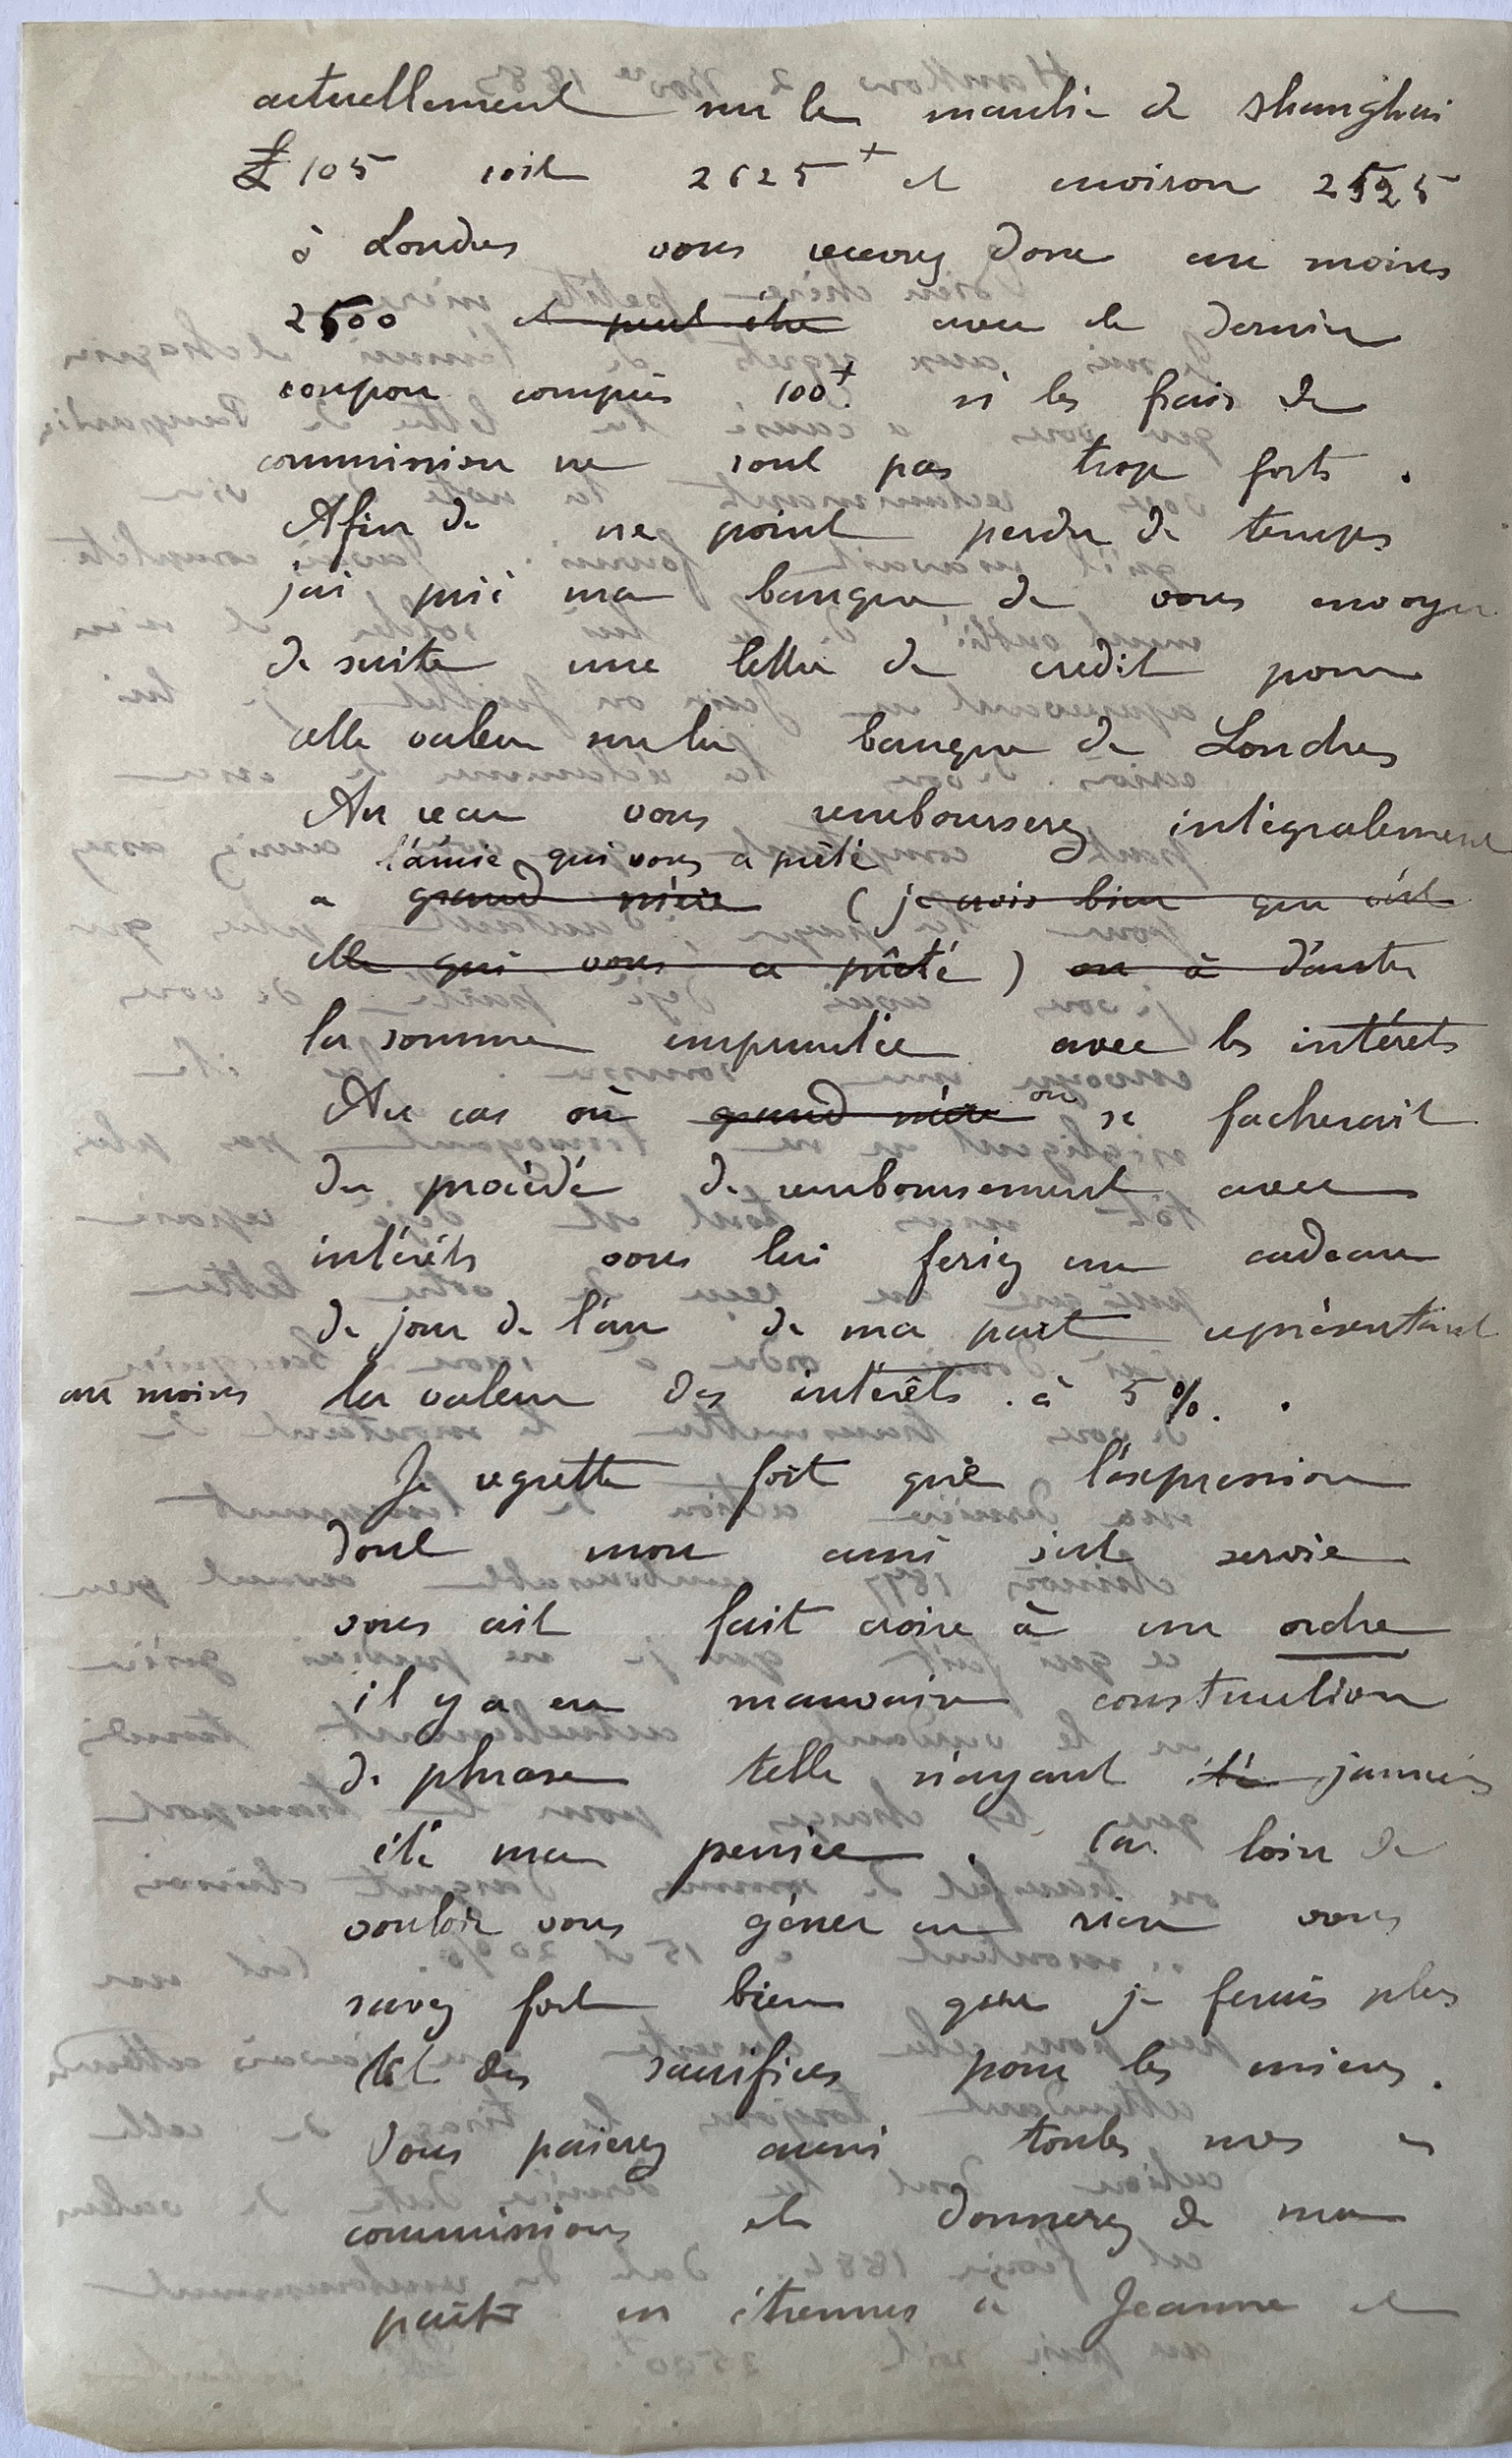 actuellement sur le marché de Shanghai
£ 105 soit 2625 + et environ 2525
à Londres vous recevrez donc au moins
2500 et peut etre avec le dernier
coupon compris 100 +. si les frais de
commission ne sont pas trop forts .
Afin de ne point perdre de temps
j'ai prié ma banque de vous envoyer
de suite une lettre de credit pour
cette valeur sur la banque de Londres
Au reçu vous rembourserez intégralement
l'amie qui vous a prêté
a grand mère (je crois bien que c'est
elle qui vous a prêté) ou à d'autres
la somme empruntée avec les intérêts
Au cas où grand mère on se facherait
du procédé de remboursement avec
intérêts vous lui feriez un cadeau
de jour de l'an de ma part représentant
au moins la valeur des intérêts . à 5 %. .
Je regrette fort que l'expression
dont mon ami s'est servie
vous ait fait croire à un ordre
il y a eu mauvaise construction
de phrase telle n'ayant été jamais
été ma pensée . Car loin de
vouloir vous gêner en rien vous
savez fort bien que je ferais plus
tôt des sacrifices pour les miens .
Vous paierez aussi toutes mes
commissions et donnerez de ma
part en étrennes à Jeanne et